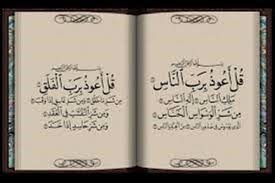 بِسْمِ اللَّهِ الرَّحْمَٰنِ الرَّحِيمِ
قُلْ أَعُوذُ بِرَبِّ النَّاسِ
مَلِكِ النَّاسِ إِلَٰهِ النَّاسِ
مِن شَرِّ الْوَسْوَاسِ الْخَنَّاسِ
الَّذِي يُوَسْوِسُ فِي صُدُورِ النَّاسِ مِنَ الْجِنَّةِ وَالنَّاسِ
بِسْمِ اللَّهِ الرَّحْمَٰنِ الرَّحِيمِ
قُلْ أَعُوذُ بِرَبِّ الْفَلَقِ
مِن شَرِّ مَا خَلَقَ وَمِن شَرِّ غَاسِقٍ إِذَا وَقَبَ
وَمِن شَرِّ النَّفَّاثَاتِ فِي الْعُقَدِ
وَمِن شَرِّ حَاسِدٍ إِذَا حَسَدَ